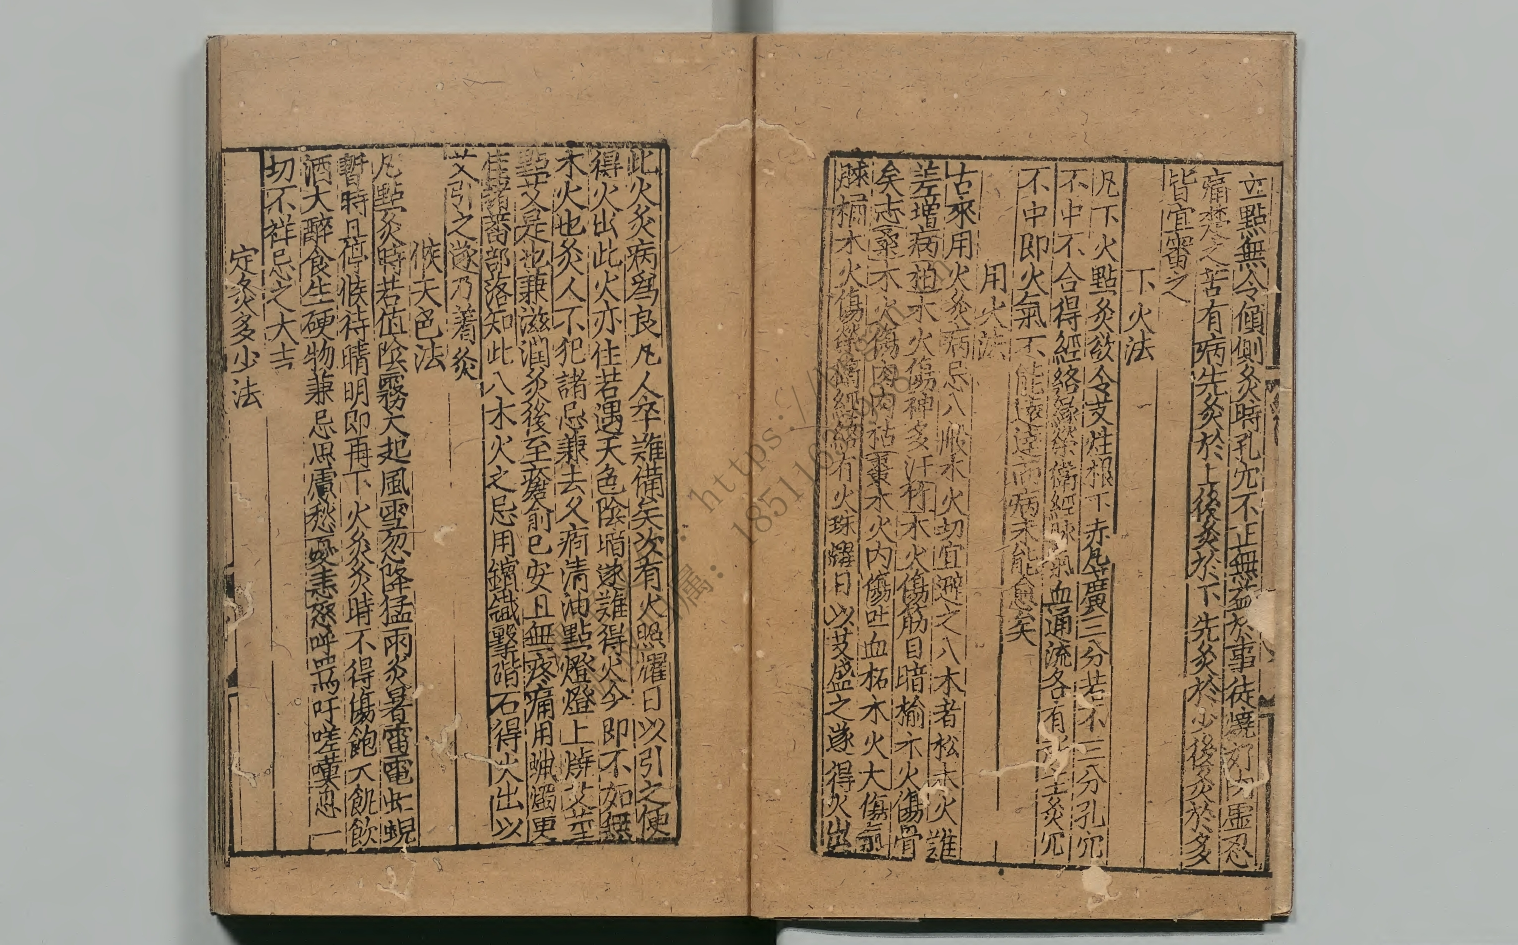 立點無令傾側灸時孔穴不正無益於事徒燒好肉虛忍
痛楚之苦有病先灸於上後灸於下先灸於少後灸於多
皆宜審之
下火法
凡下火點灸欲令艾炷根下赤㿈廣三分若不三分孔穴
不中不合得經絡緣榮衛經脉氣血通流各有所主灸穴
不中即火氣不能遠達而病未能愈矣
用火法
古來用火灸病忌八般木火切宜避之八木者松木火難
差增病柏木火傷神多汗竹木火傷筋目暗榆木火傷骨
矣志桑木火傷肉肉枯棗木火內傷吐血柘木火大傷氣
脉橘木火傷榮衛經絡有火珠耀日以艾盛之遂得火出
此火灸病爲良凡人卒難備矣次有火照耀日以引之便
得火出此火亦佳若遇天色陰暗遂難得火今即不如無
木火也灸人不犯諸忌兼去久痾清油點燈燈上燒艾莖
點艾是也兼滋潤灸後至瘡愈已安且無疼痛用蠟燭更
佳諸蕃部落知此八木火之忌用鑌鐵擊堦石得火出以
艾引之遂乃著灸
候天色法
凡點灸時若值陰霧大起風雪忽降猛雨炎暑雷電虹蜺
暫時且停候待晴明即再下火灸灸時不得傷飽大飢飲
酒大醉食生硬物兼忌思慮愁憂恚怒呼罵吁嗟嘆息一
切不祥忌之大吉
定灸多少法